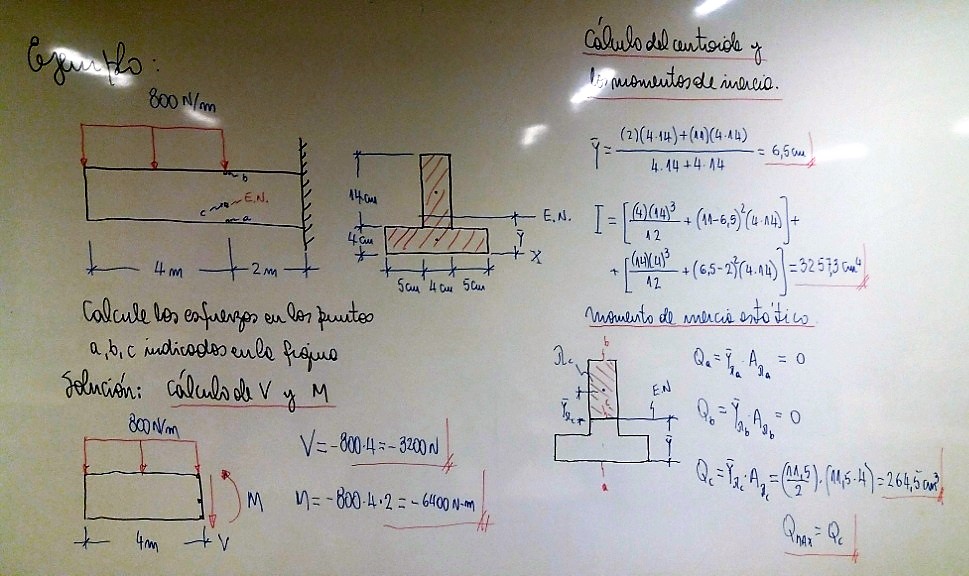 Ejemplo:
800 N/m
b
E.N.
c
a
4m
2m
14cm
4cm
E.N.
Ȳ
X
5cm 4cm 5cm
Calcule los esfuerzos en los puntos
a, b, c indicados en la figura
Solución: Cálculo de V y M
800N/m
M
4m
V
V = -800·4 = -3200 N
M = -800·4·2 = -6400 N-m
Cálculo del centroide y
los momentos de inercia.
Ȳ = (2)(4·14)+(11)(4·14) / 4·14+4·14 = 6,5cm
I = [(4)(14)³/12 + (11-6,5)²(4·14)] +
+ [(14)(4)³/12 + (6,5-2)²(4·14)] = 3257,3 cm⁴
momento de inercia estático.
b
Ωc
E.N
ȲΩc
Ȳ
a
Qa = ȲΩa · AΩa = 0
Qb = ȲΩb · AΩb = 0
Qc = ȲΩc · AΩc = (11,5/2)·(11,5·4) = 264,5cm³
QMAX = Qc